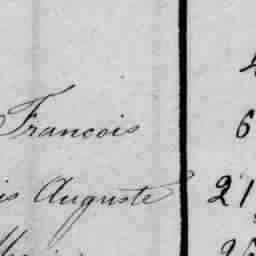 Francois 6
is Auguste 21